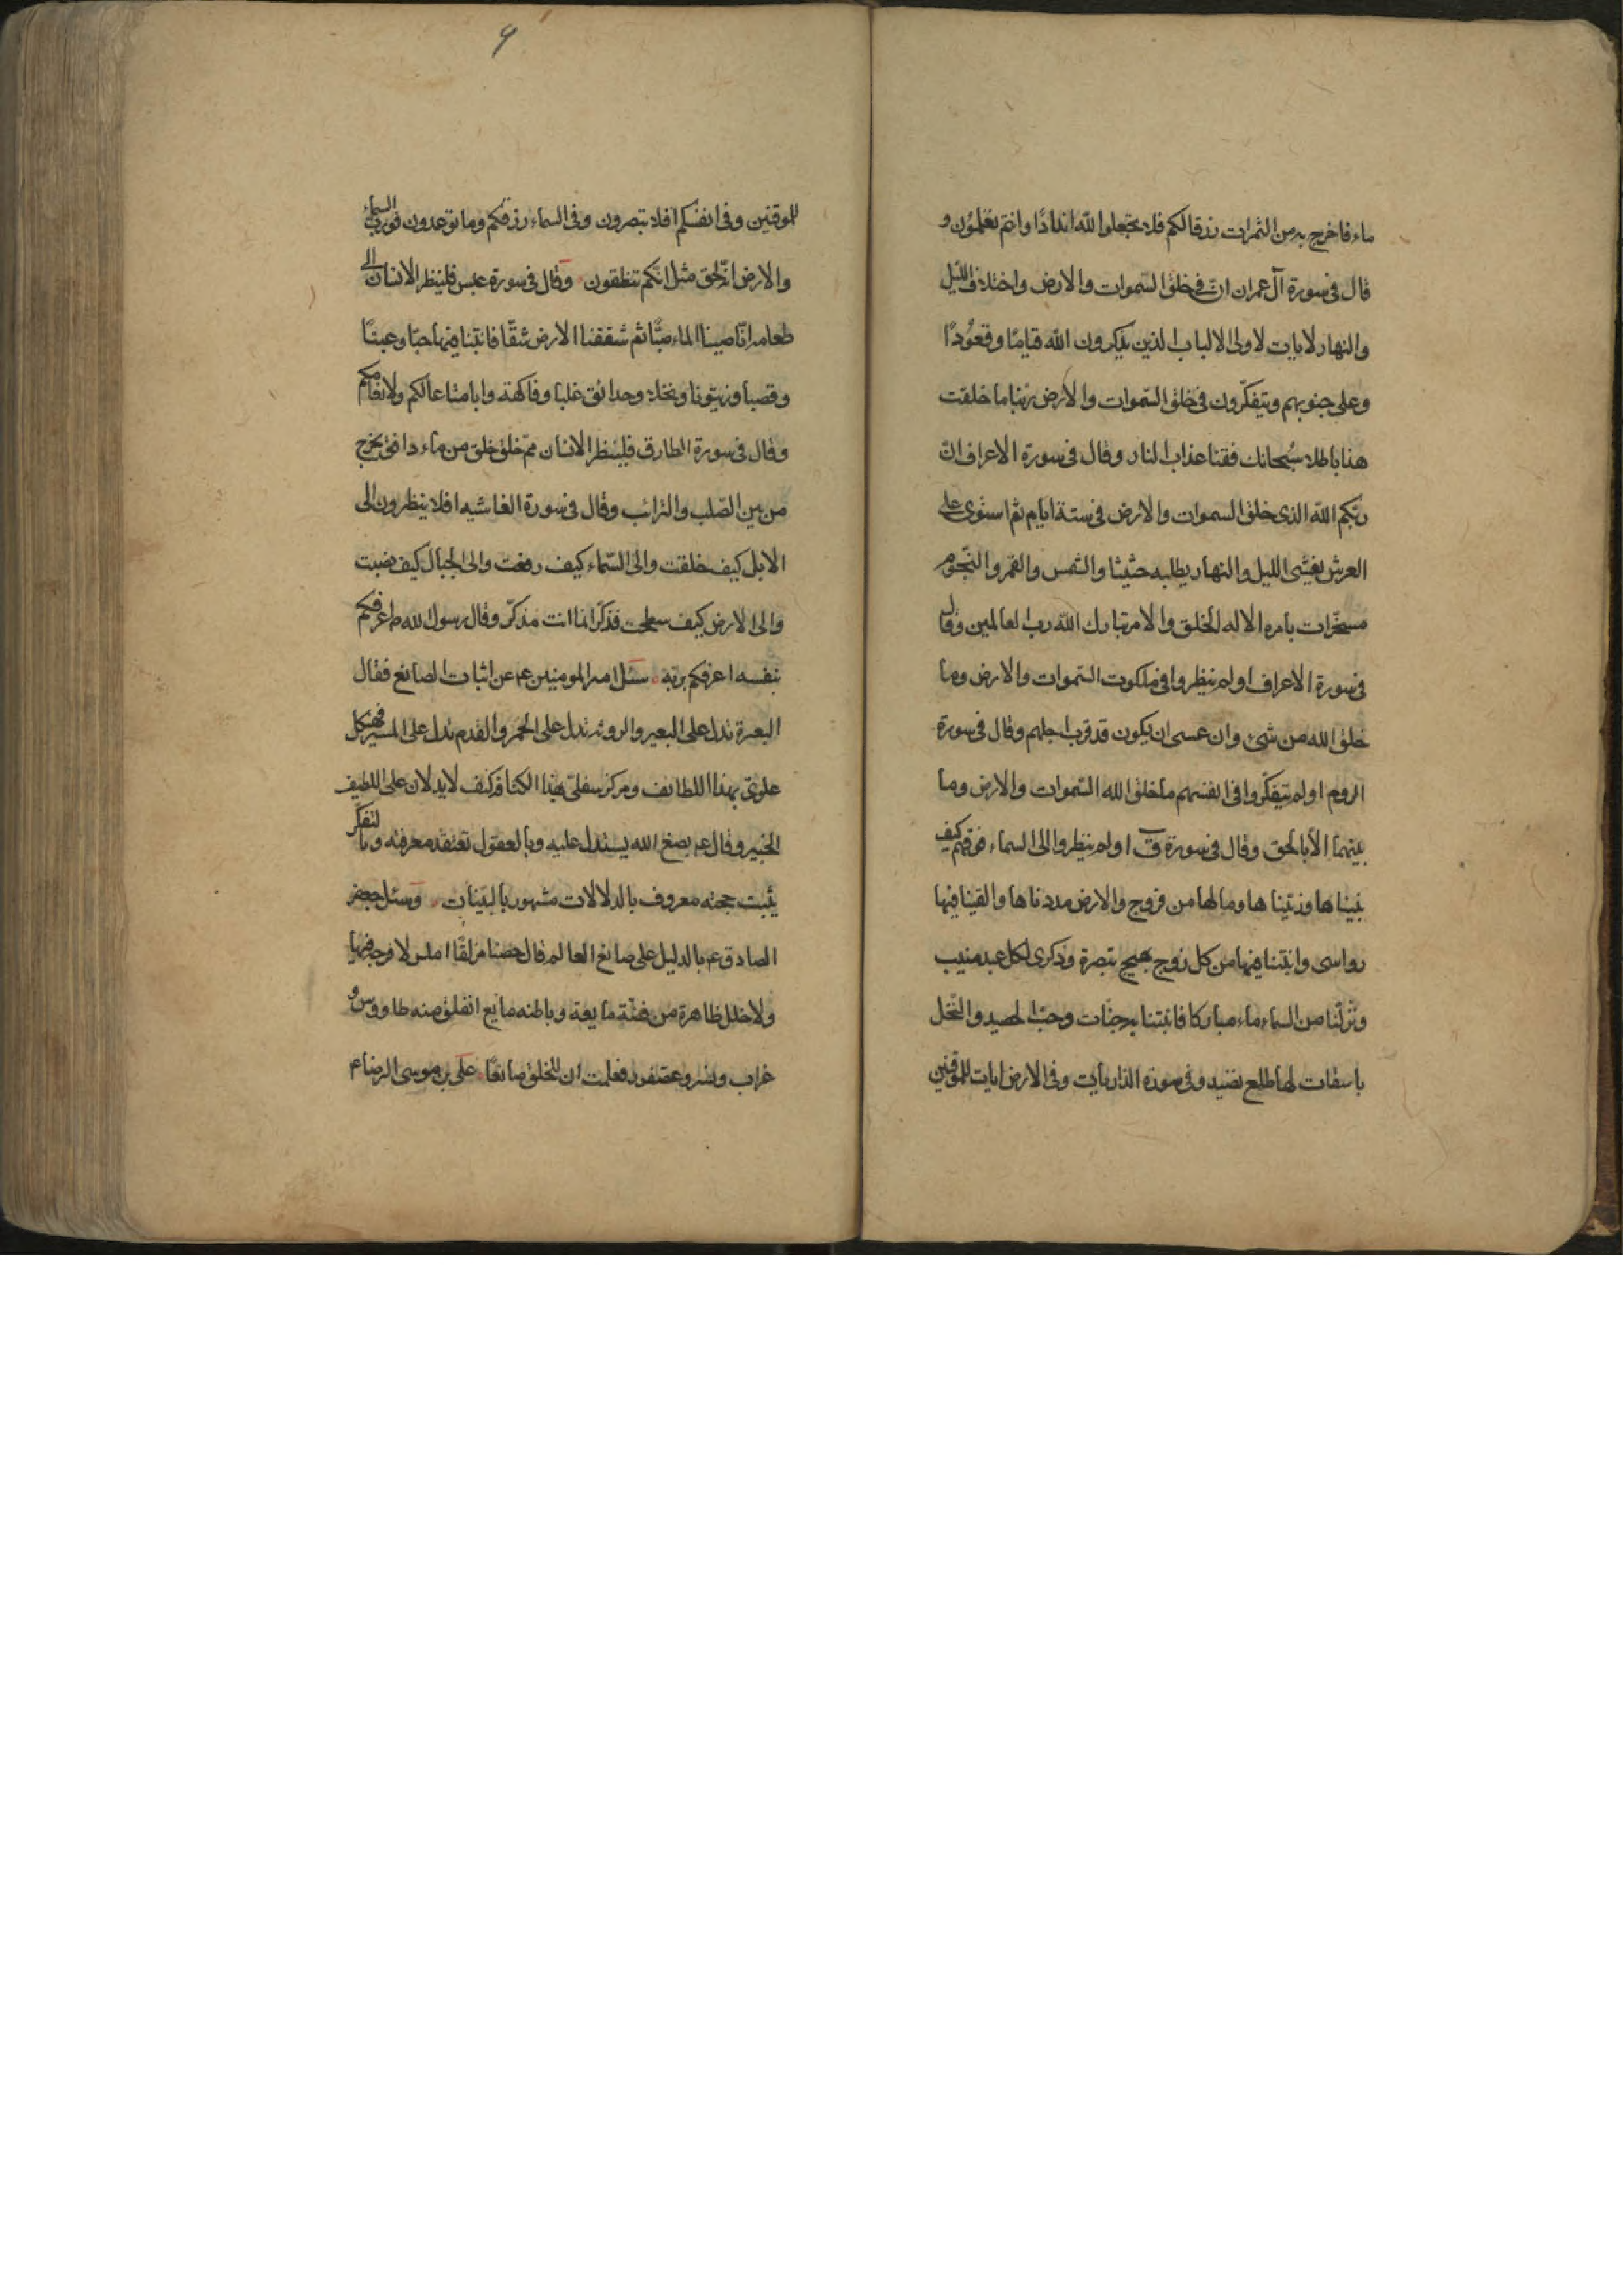 ماء فاخرج به من الثمرات رزقا لكم فلا تجعلوا لله اندادًا وانتم تعلمون و
قال فى سورة آل عمران ان فى خلق السموات والارض واختلاف الليل
والنهار لايات لاولى الالباب الذين يذكرون الله قيامًا وقعودًا
وعلى جنوبهم ويتفكّرون فى خلق السّموات والارض ربنا ما خلقت
هذا باطلا سُبحانك فقنا عذاب النار وقال فى سورة الاعراف انّ
ربّكم الله الذى خلق السموات والارض فى ستة ايام ثم استوى على
العرش يغشى الليل والنهار يطلبه حثيثا والشمس والقمر والنّجوم
مسخّرات بامره الا له الخلق والامر تبارك الله رب العالمين وقال
فى سورة الاعراف اولم ينظروا فى ملكوت السّموات والارض وما
خلق الله من شىء وان عسى ان يكون قد قرب اجلهم وقال فى سورة
الروم اولم يتفكّروا فى انفسهم ما خلق الله السّموات والارض وما
بينهما الّا بالحق وقال فى سورة ق اولم ينظروا الى السماء فوقهم كيف
بنيناها وزيّناها وما لها من فروج والارض مددناها والقينا فيها
رواسى وانبتنا فيها من كل زوج بهيج تبصرة وذكرى لكل عبد منيب
ونزّلنا من السماء ماء مباركا فانبتنا به جنّات وحبّ الحصيد والنّخل
باسقات لها طلع نضيد وفى سورة الذاريات وفى الارض ايات للموقنين
9
للموقنين وفى انفسكم افلا تبصرون وفى السماء رزقكم وما توعدون فورب السماء
والارض انّه لحق مثل انّكم تنطقون وقال فى سورة عبس فلينظر الانسان الى
طعامه انّا صببنا الماء صبًّا ثم شققنا الارض شقّا فانبتنا فيها حبّا وعنبًا
وقضبا وزيتونا ونخلا وحدائق غلبا وفاكهة وابا متاعا لكم ولانعامكم
وقال فى سورة الطارق فلينظر الانسان ممّ خلق خلق من ماء دافق يخرج
من بين الصّلب والترائب وقال فى سورة الغاشيه افلا ينظرون الى
الابل كيف خلقت والى السّماء كيف رفعت والى الجبال كيف نصبت
والى الارض كيف سطحت فذكّر انما انت مذكّر وقال رسول الله ص اعرفكم
بنفسه اعرفكم بربّه سئل امير المومنين عم عن اثبات الصانع فقال
البعرة تدل على البعير والروثه تدل على الحمير والقدم تدل على المسير فهيكل
علوىّ بهذا اللطايف ومركز سفلىّ هذا الكثافة كيف لا يدلان على اللطيف
الخبير وقال عم بصنع الله يستدل عليه وبالعقول تعتقد معرفته وبالتفكّر
يثبت حجته معروف بالدلالات مشهور بالبيّنات وسئل جعفر
الصادق عم بالدليل على صانع العالم قال حصنا مزلقًا املس لا فرج فيها
ولا خلل ظاهرة من فضّة مايعة وباطنه مايع انفلق منه طاووس و
غراب ونسر وعصفور فعلمت ان للخلق صانعًا على بن موسى الرضا ع